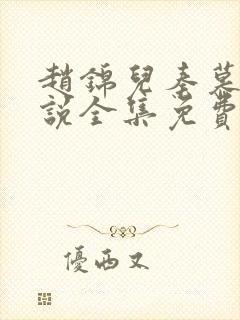 趙錦兒秦慕
說全集免費
優西又